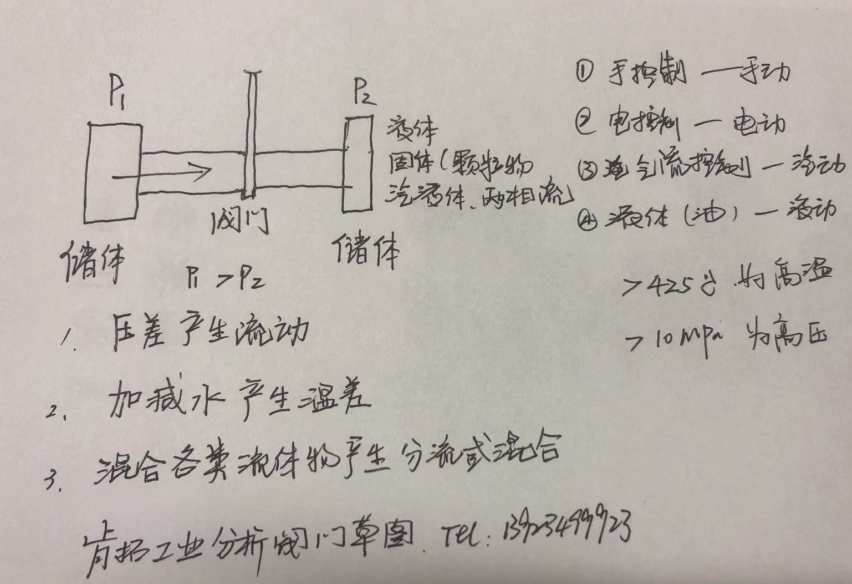 P₁
P₂
液体
固体(颗粒物
汽液体、两相流)
阀门
储体
储体
P₁ > P₂
① 手控制 — 手动
② 电控制 — 电动
③ 气流控制 — 汽动
④ 液体(油) — 液动
>425℃ 为高温
>10MPa 为高压
1. 压差产生流动
2. 加减水产生温差
3. 混合各类流体物产生分流或混合
肯拓工业分析阀门草图. TEL: 13923499923